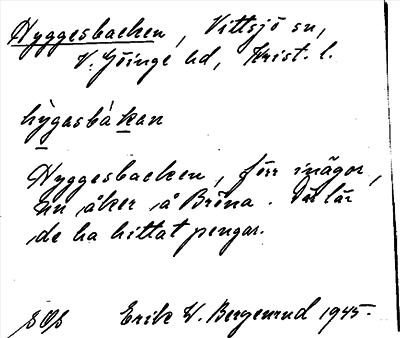 Hyggesbacken, Vittsjö sn,
V. Göinge hd, Krist. l.
hỳgasbàkan
Hyggesbacken, förr inägor,
nu åker å Bröna. Där lär
de ha hittat pengar.
Erik W. Bergenrud 1945.